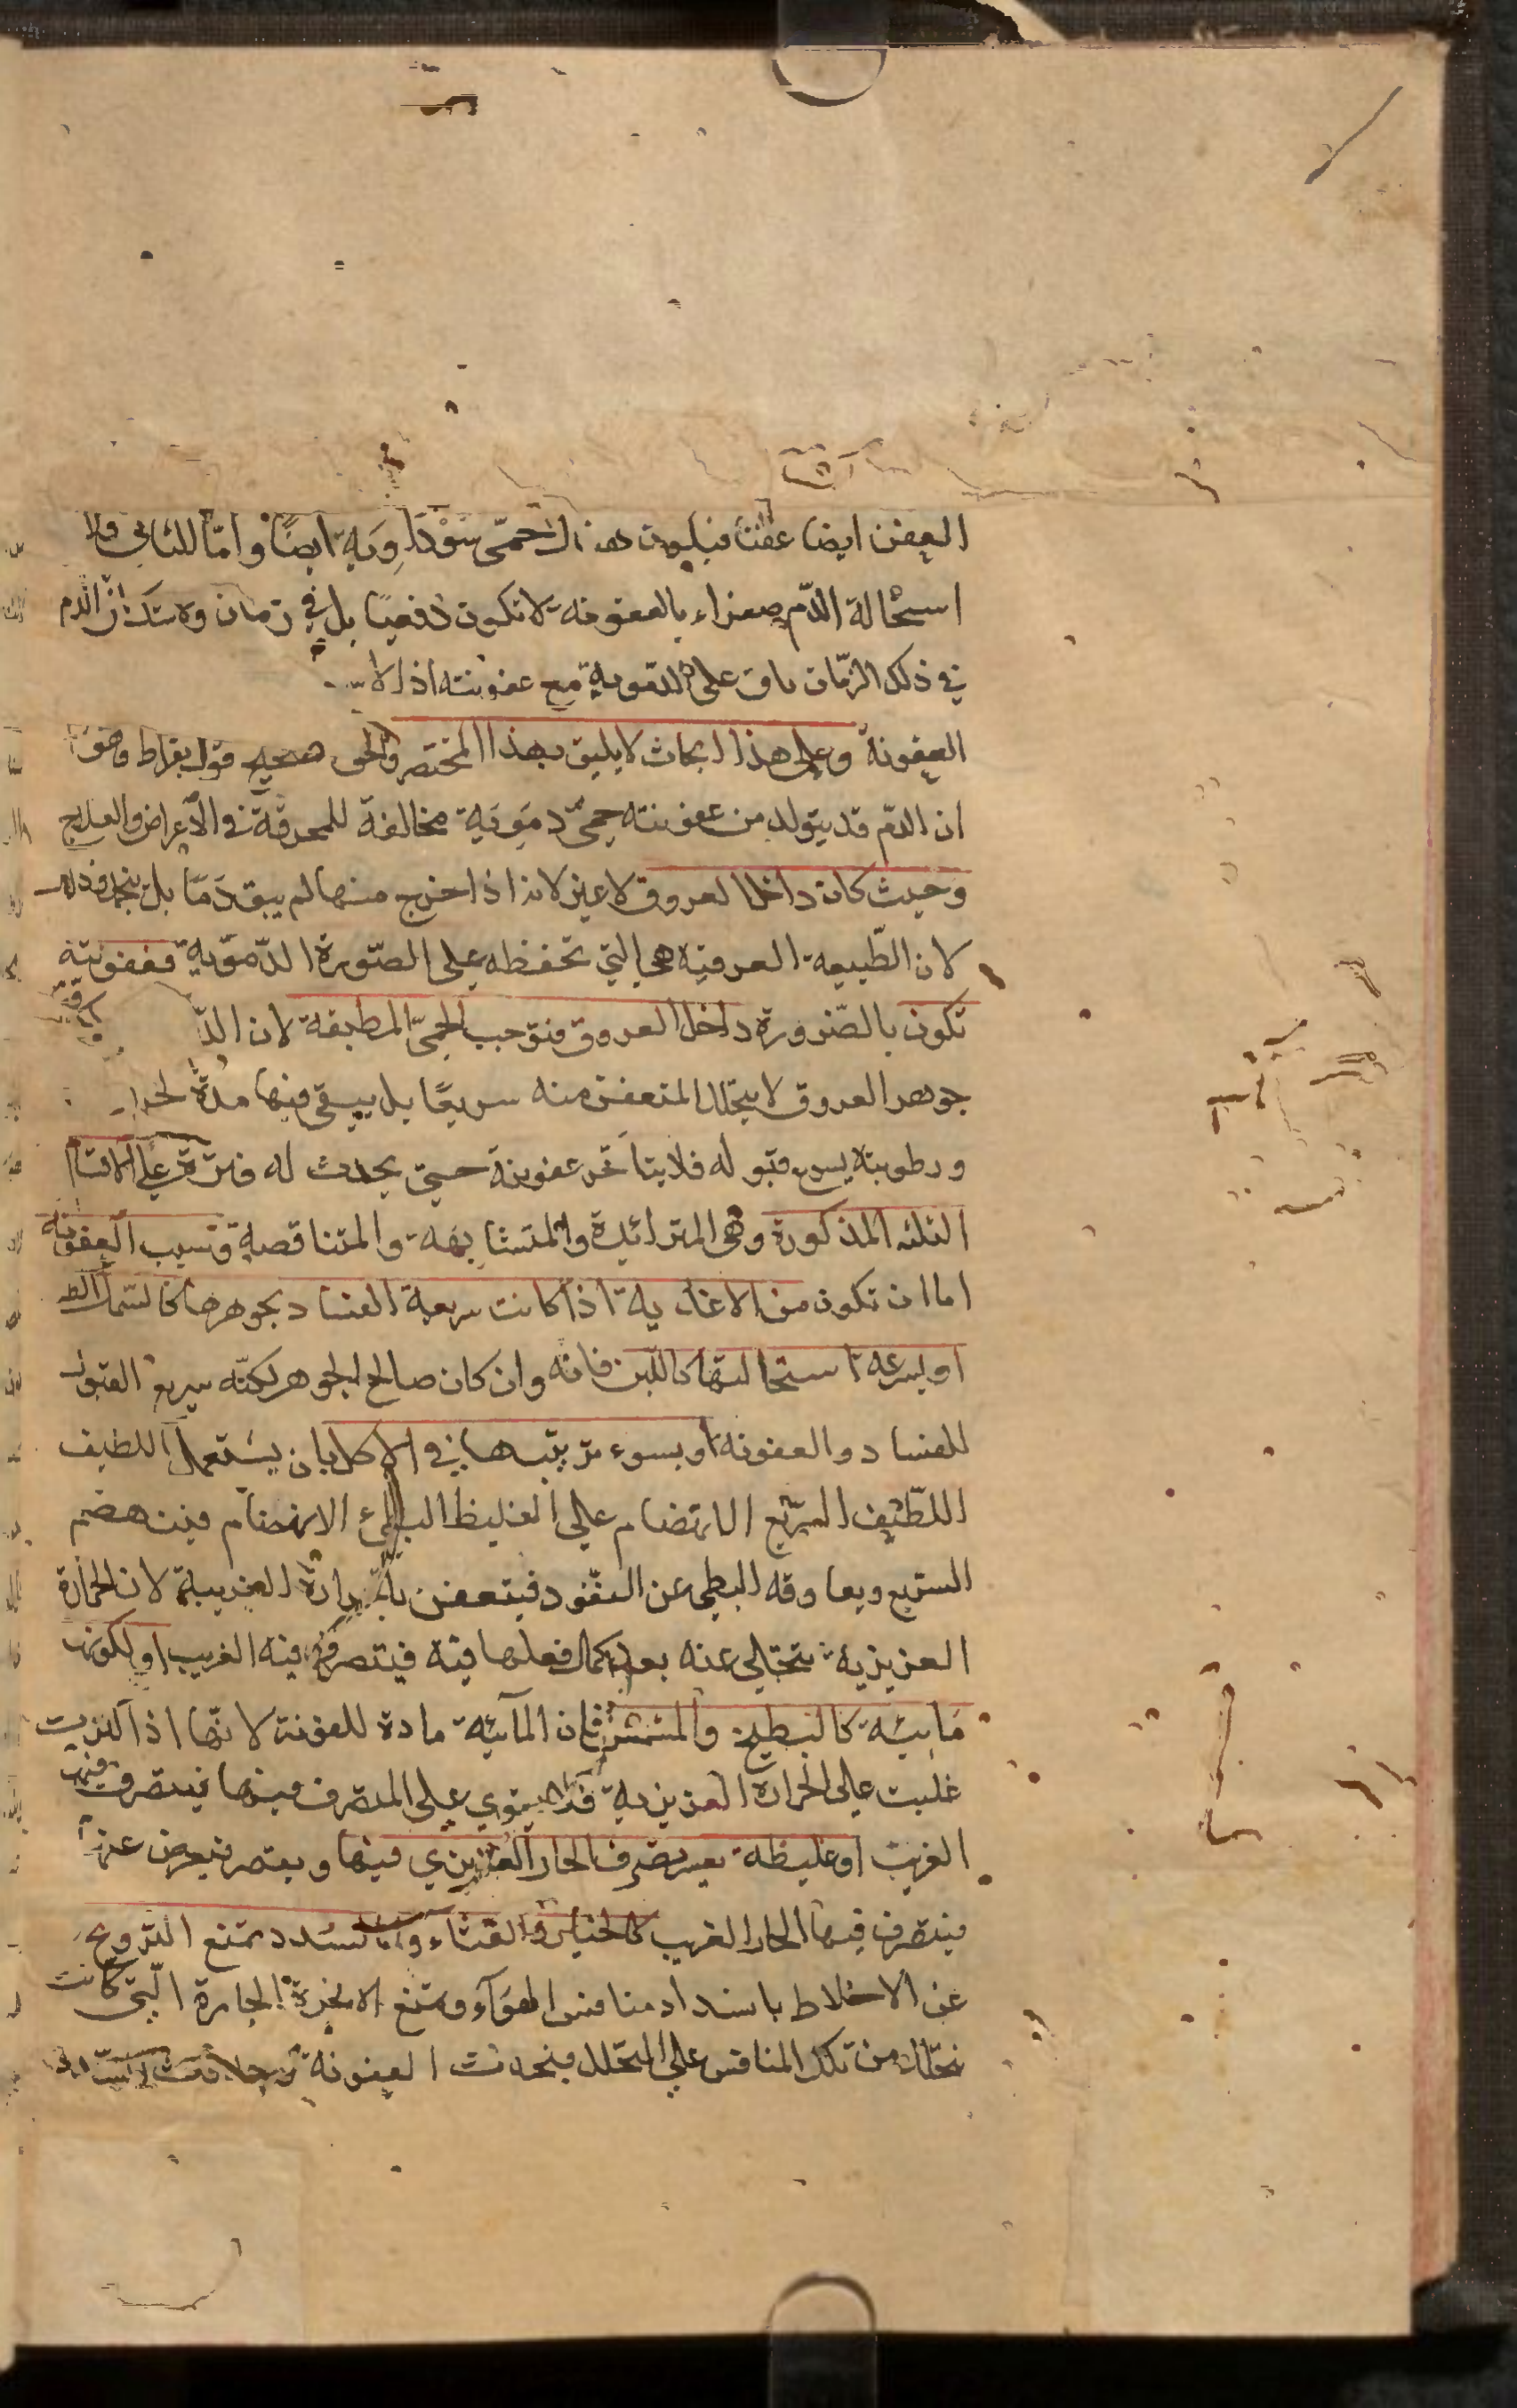 العفن ايضا عفنا فيكون هناك حمّى سَوْدَاوِيَة ايضًا وامّا للثاني فلا
استحالة الدّم صفراء بالعفونة لا تكون دفعيا بل في زمان ولا شك ان الدم
في ذلك الزمّان باق على الدموية مع عفونته اذ لا
العفونة وعلى هذا ابحاث لا يليق بهذا المختصر والحق صحة قول بقراط وهو
ان الدم قد يتولد من عفونته حمىّ دمَويَة مخالفة للمحرقة في الأعراض والعلاج
وحيث كان داخل العروق لا غير لانه اذا خرج منها لم يبق دَمًا بل
لان الطّبيعه العرقية هي التي تحفظه على الصّورة الدّموّية فعفونته
تكون بالضّرورة داخل العروق فتوجب الحمىّ المطبقة لان
جوهر العروق لا يتحلل المتعفن منه سريعًا بل يبقى فيها مدّة لحرار
ورطوبته يسرع قبوله فلا يتاخّر عفونة حتى يحدث له فترة على الاقسام
الثلثه المذكورة وهى المتزائيدة والمتشابهة والمتناقصة وسبب العفونة
اما ان تكون من الاغذية اذا كانت سريعة الفساد بجوهرها كالسّمك
او بسرعة استحالتها كاللّبن فانّه وان كان صالح الجوهر لكنّه سريع القبول
للفساد والعفونة او بسوء ترتيبها في الاكل بان يستعمل اللطيف
اللّطيف السّريع الانهضام على الغليظ البطيء الانهضام فينهضم
السريع ويعاوقه البطى عن النّفود فيتعفن بالحرارة الغريبة لان الحرارة
الغريزية تتخلى عنه بعد كمال فعلها فيه فيتصرف فيه الغريب او لكونها
مَايئة كالبطيخ والمشمش فان المآئية مادة للعفونة لانّها اذا كثرت
غلبت على الحرارة الغريزية فلا يقوي على التصرف فيها فيتصرف فيها
الغريب او غليظة يعسر تصرف الحار الغريزي فيها ويقصر فيعرض عنها
فيتصرف فيها الحار الغريب كالخيار والقثاء واما لسدد تمنع التروح
عن الاخلاط بانسداد منافس الهوآء ومنع الابخرة الحارة الّتى كانت
تتحلل من تلك المنافس على التحلل فيحدث العفونة